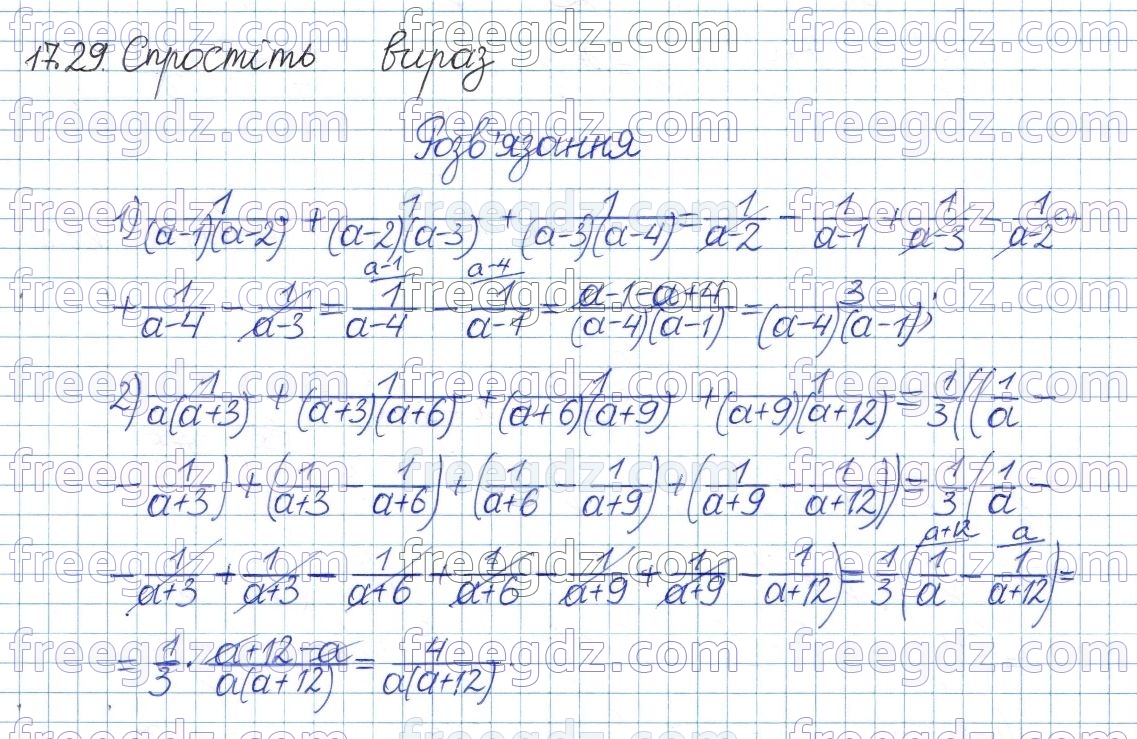 17.29. Спростіть вираз
Розв'язання
1) 1/((a-1)(a-2)) + 1/((a-2)(a-3)) + 1/((a-3)(a-4)) = 1/(a-2) - 1/(a-1) + 1/(a-3) - 1/(a-2) +
+ 1/(a-4) - 1/(a-3) = 1/(a-4) (a-1) - 1/(a-1) (a-4) = (a-1-a+4)/((a-4)(a-1)) = 3/((a-4)(a-1));
2) 1/(a(a+3)) + 1/((a+3)(a+6)) + 1/((a+6)(a+9)) + 1/((a+9)(a+12)) = 1/3((1/a -
- 1/(a+3)) + (1/(a+3) - 1/(a+6)) + (1/(a+6) - 1/(a+9)) + (1/(a+9) - 1/(a+12))) = 1/3(1/a -
- 1/(a+3) + 1/(a+3) - 1/(a+6) + 1/(a+6) - 1/(a+9) + 1/(a+9) - 1/(a+12)) = 1/3(1/a (a+12) - 1/(a+12) (a)) =
= 1/3 · (a+12-a)/(a(a+12)) = 4/(a(a+12)).
freegdz.com